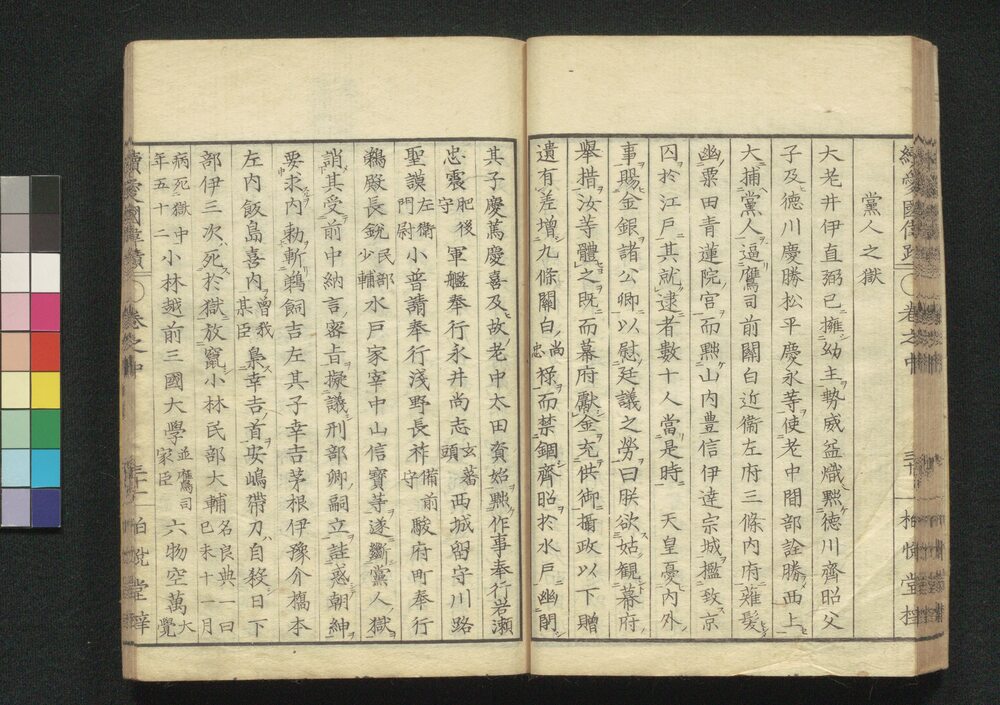 黨人之獄
大老井伊直弼已擁幼主勢威益熾黜德川齊昭父
子及德川慶勝松平慶永等使老中間部詮勝西上
大捕黨人逼鷹司前關白近衞左府三條內府薙髮
幽粟田青蓮院宮而黜山內豊信伊達宗城檻致京
囚於江戶其就逮者數十人當是時 天皇憂內外
事賜金銀諸公卿以慰廷議之勞曰朕欲姑觀幕府
舉措汝等體之既而幕府獻金充供御攝政以下贈
遺有差增九條關白尚忠祿而禁錮齊昭於水戶幽閉
其子慶篤慶喜及故老中太田資始黜作事奉行岩瀨
忠震肥後守軍艦奉行永井尚志玄蕃頭西城留守川路
聖謨左衞門尉小普請奉行淺野長祚備前守駿府町奉行
鵜殿長銳民部少輔水戶家宰中山信寶等遂斷黨人獄
誚其受前中納言密旨擬議刑部卿嗣立詿惑朝紳
要求內勅斬鵜飼吉左其子幸吉茅根伊豫介橋本
左內飯島喜內曾我甚臣梟幸吉首安嶋帶刀自殺日下
部伊三次死於獄放竄小林民部大輔名良典一曰已未十一月
病死獄中年五十二小林越前三國大學並鷹司家臣六物空萬大覺
續愛國偉績 卷之中 三十一 柏悅堂梓